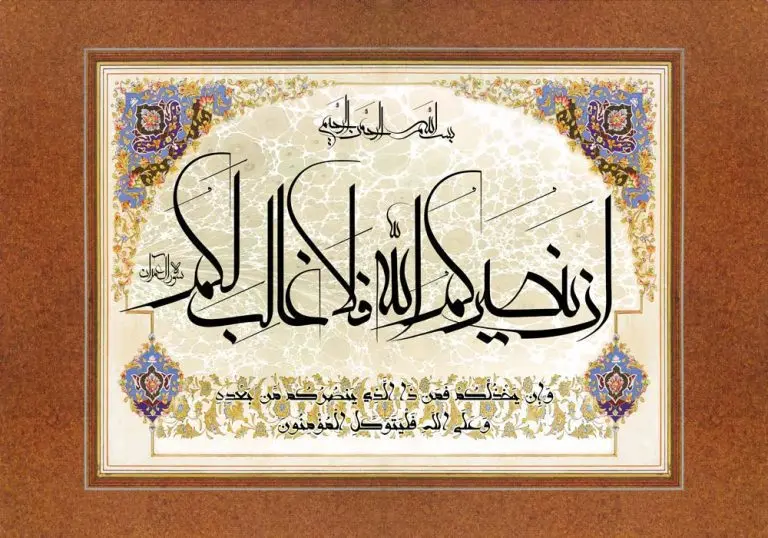 بسم الله الرحمن الرحيم
ان ينصركم الله فلا غالب لكم
سورة آل عمران
وإن يخذلكم فمن ذا الذي ينصركم من بعده
وعلى الله فليتوكل المؤمنون